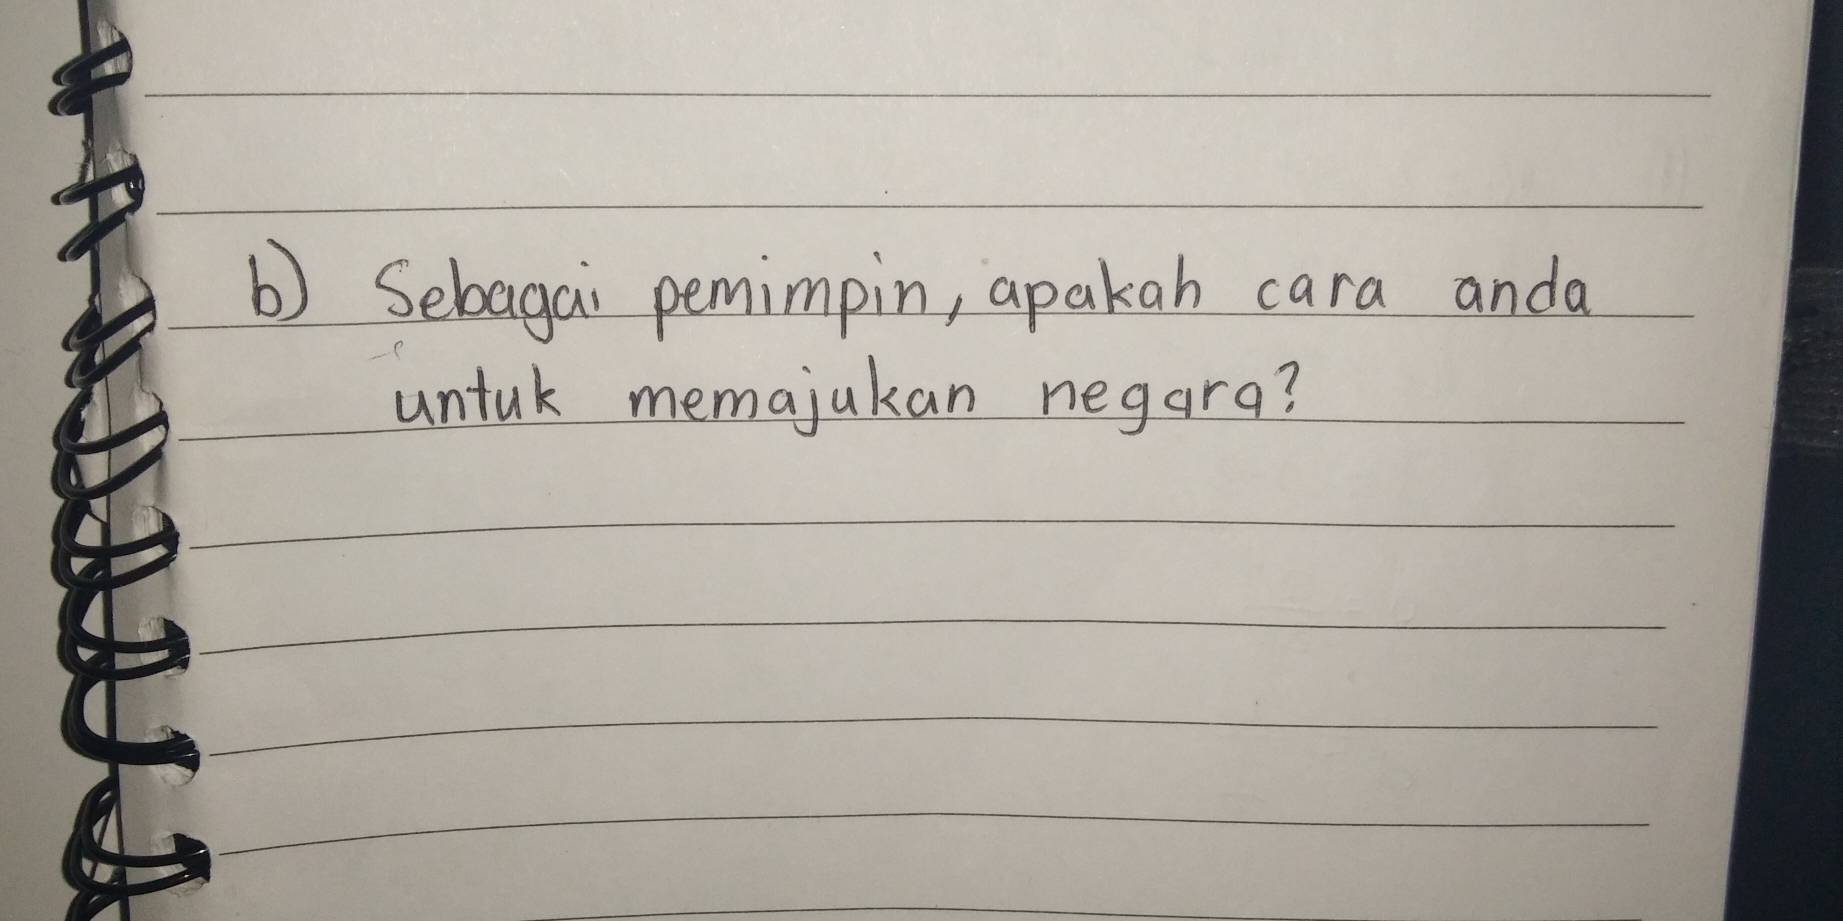 b) Sebagai pemimpin, apakah cara anda
untuk memajukan negara?